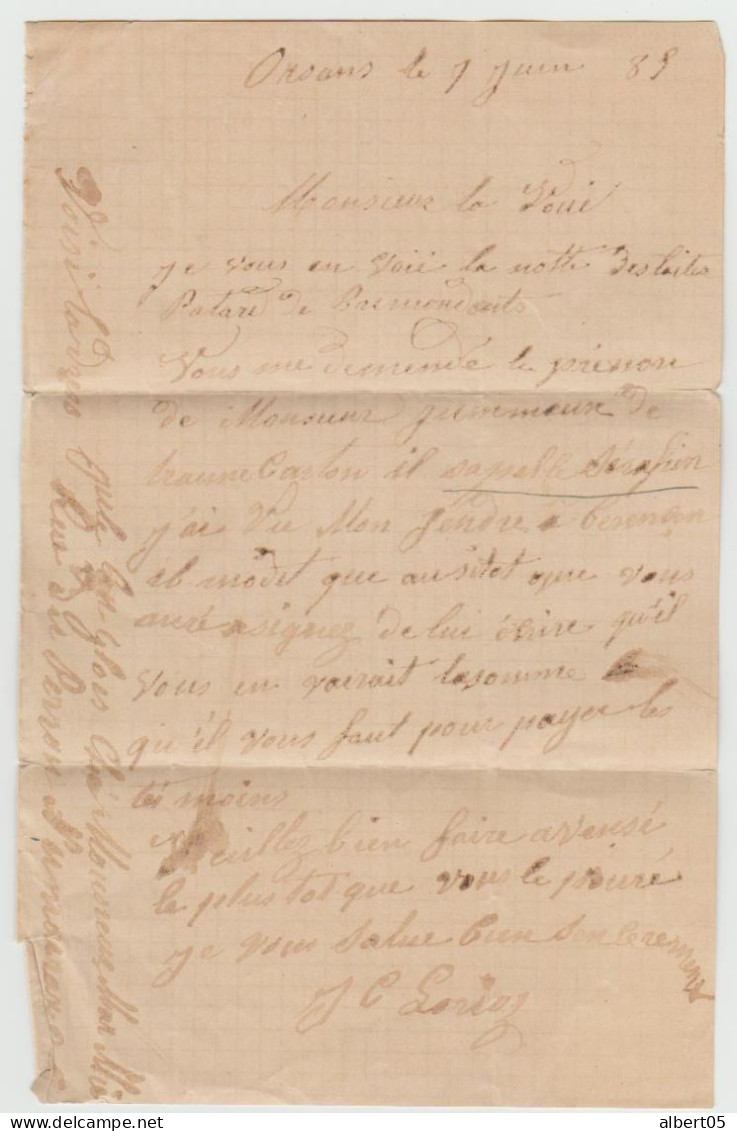 Orsans le 7 Juin 85
Monsieur la Voué
je vous en voié la notte des laites
Patard de Bremondants
Vous me demendé le prénon
de Monsieur Jummeux de
il sapelle Sérafin
j'ai Vu Mon Jendre à besençon
il modit que ausitot que vous
auré asignez de lui écrire qu'il
vous en vairait lasomme
qu'il vous faut pour payer les
té moins
Veuillez bien faire avensé
le plus tot que vous le pouré
je vous salue bien sencerement
J C Loriot
Voisi ladres Jule Chez Monsieur
Rue du Perron
albert05